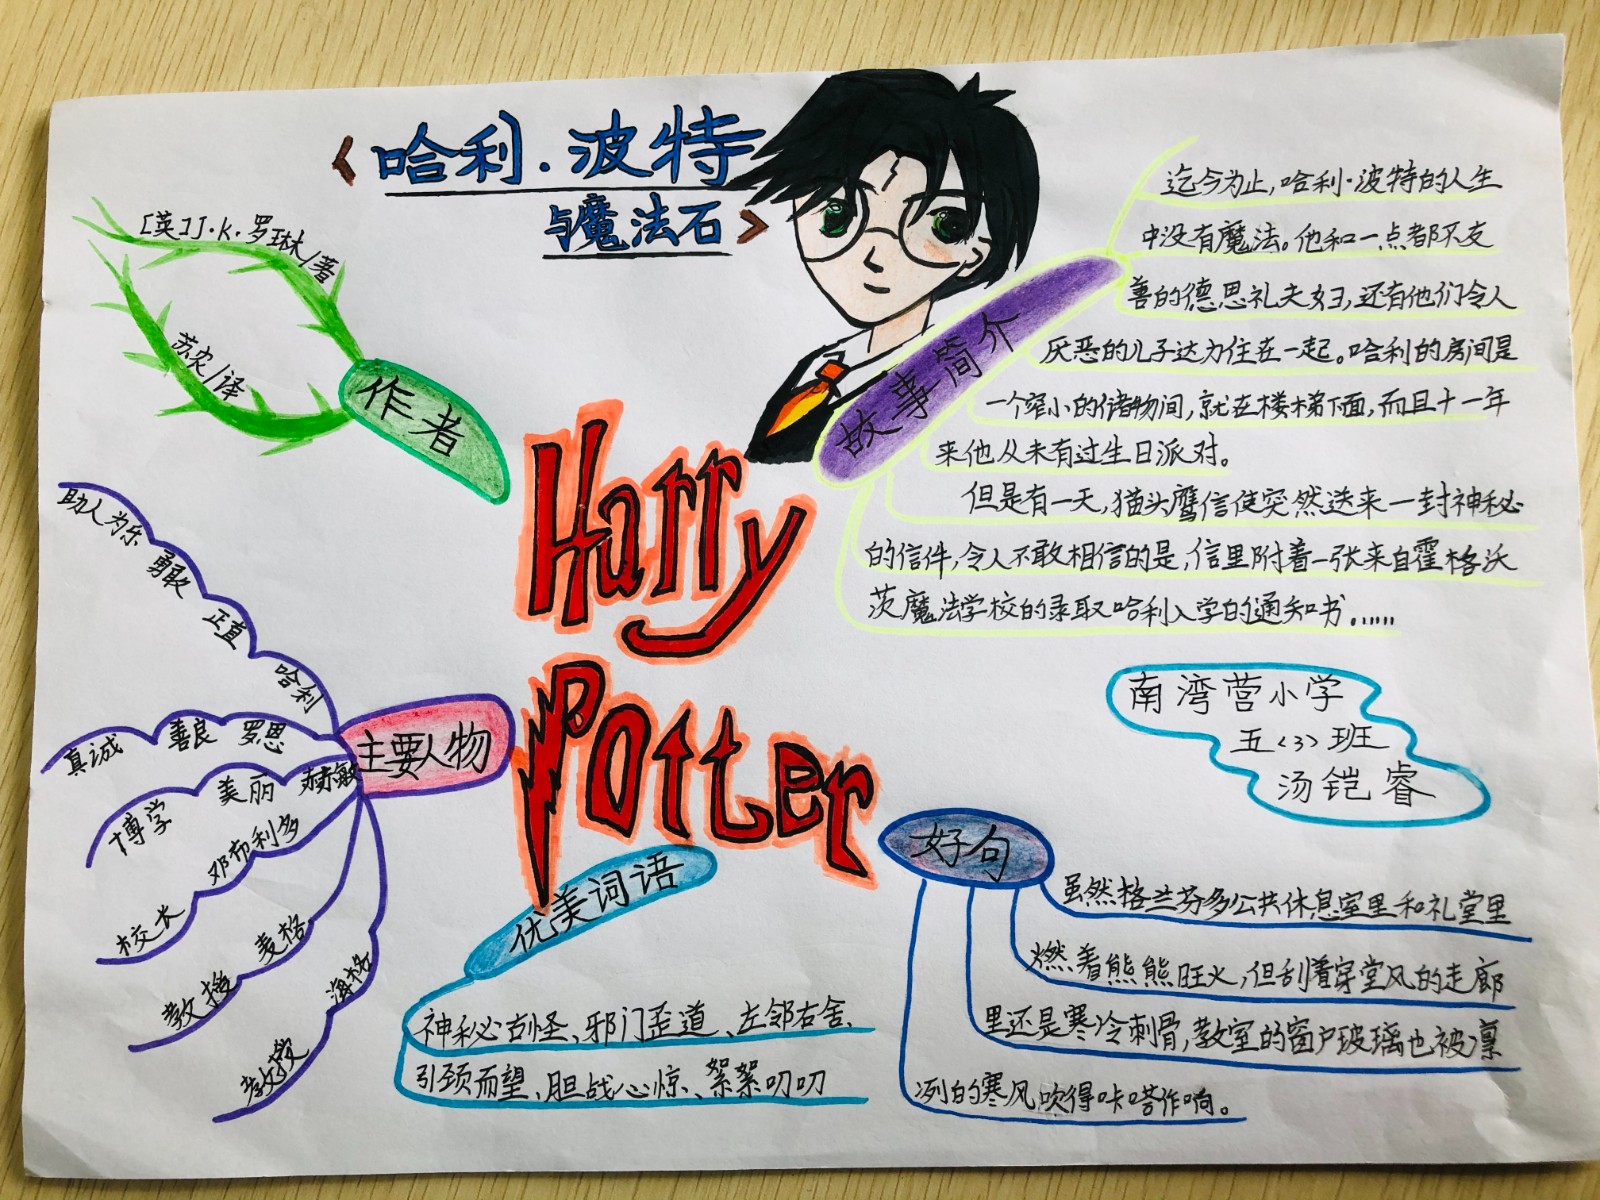 《哈利·波特
与魔法石》
[英]J·K·罗琳/著
苏农/译
作者
故事简介
迄今为止,哈利·波特的人生
中没有魔法。他和一点都不友
善的德思礼夫妇,还有他们令人
厌恶的儿子达力住在一起。哈利的房间是
一个窄小的储物间,就在楼梯下面,而且十一年
来他从未有过生日派对。
但是有一天,猫头鹰信使突然送来一封神秘
的信件,令人不敢相信的是,信里附着一张来自霍格沃
茨魔法学校的录取哈利入学的通知书。……
Harry
Potter
主要人物
助人为乐 勇敢 正直 哈利
真诚 善良 罗恩
博学 美丽 赫敏
校长 邓布利多
教授 麦格
教授 海格
南湾营小学
五<3>班
汤铠睿
优美词语
神秘古怪、邪门歪道、左邻右舍、
引颈而望、胆战心惊、絮絮叨叨
好句
虽然格兰芬多公共休息室里和礼堂里
燃着熊熊旺火,但刮着穿堂风的走廊
里还是寒冷刺骨,教室的窗户玻璃也被凛
冽的寒风吹得咔嗒作响。